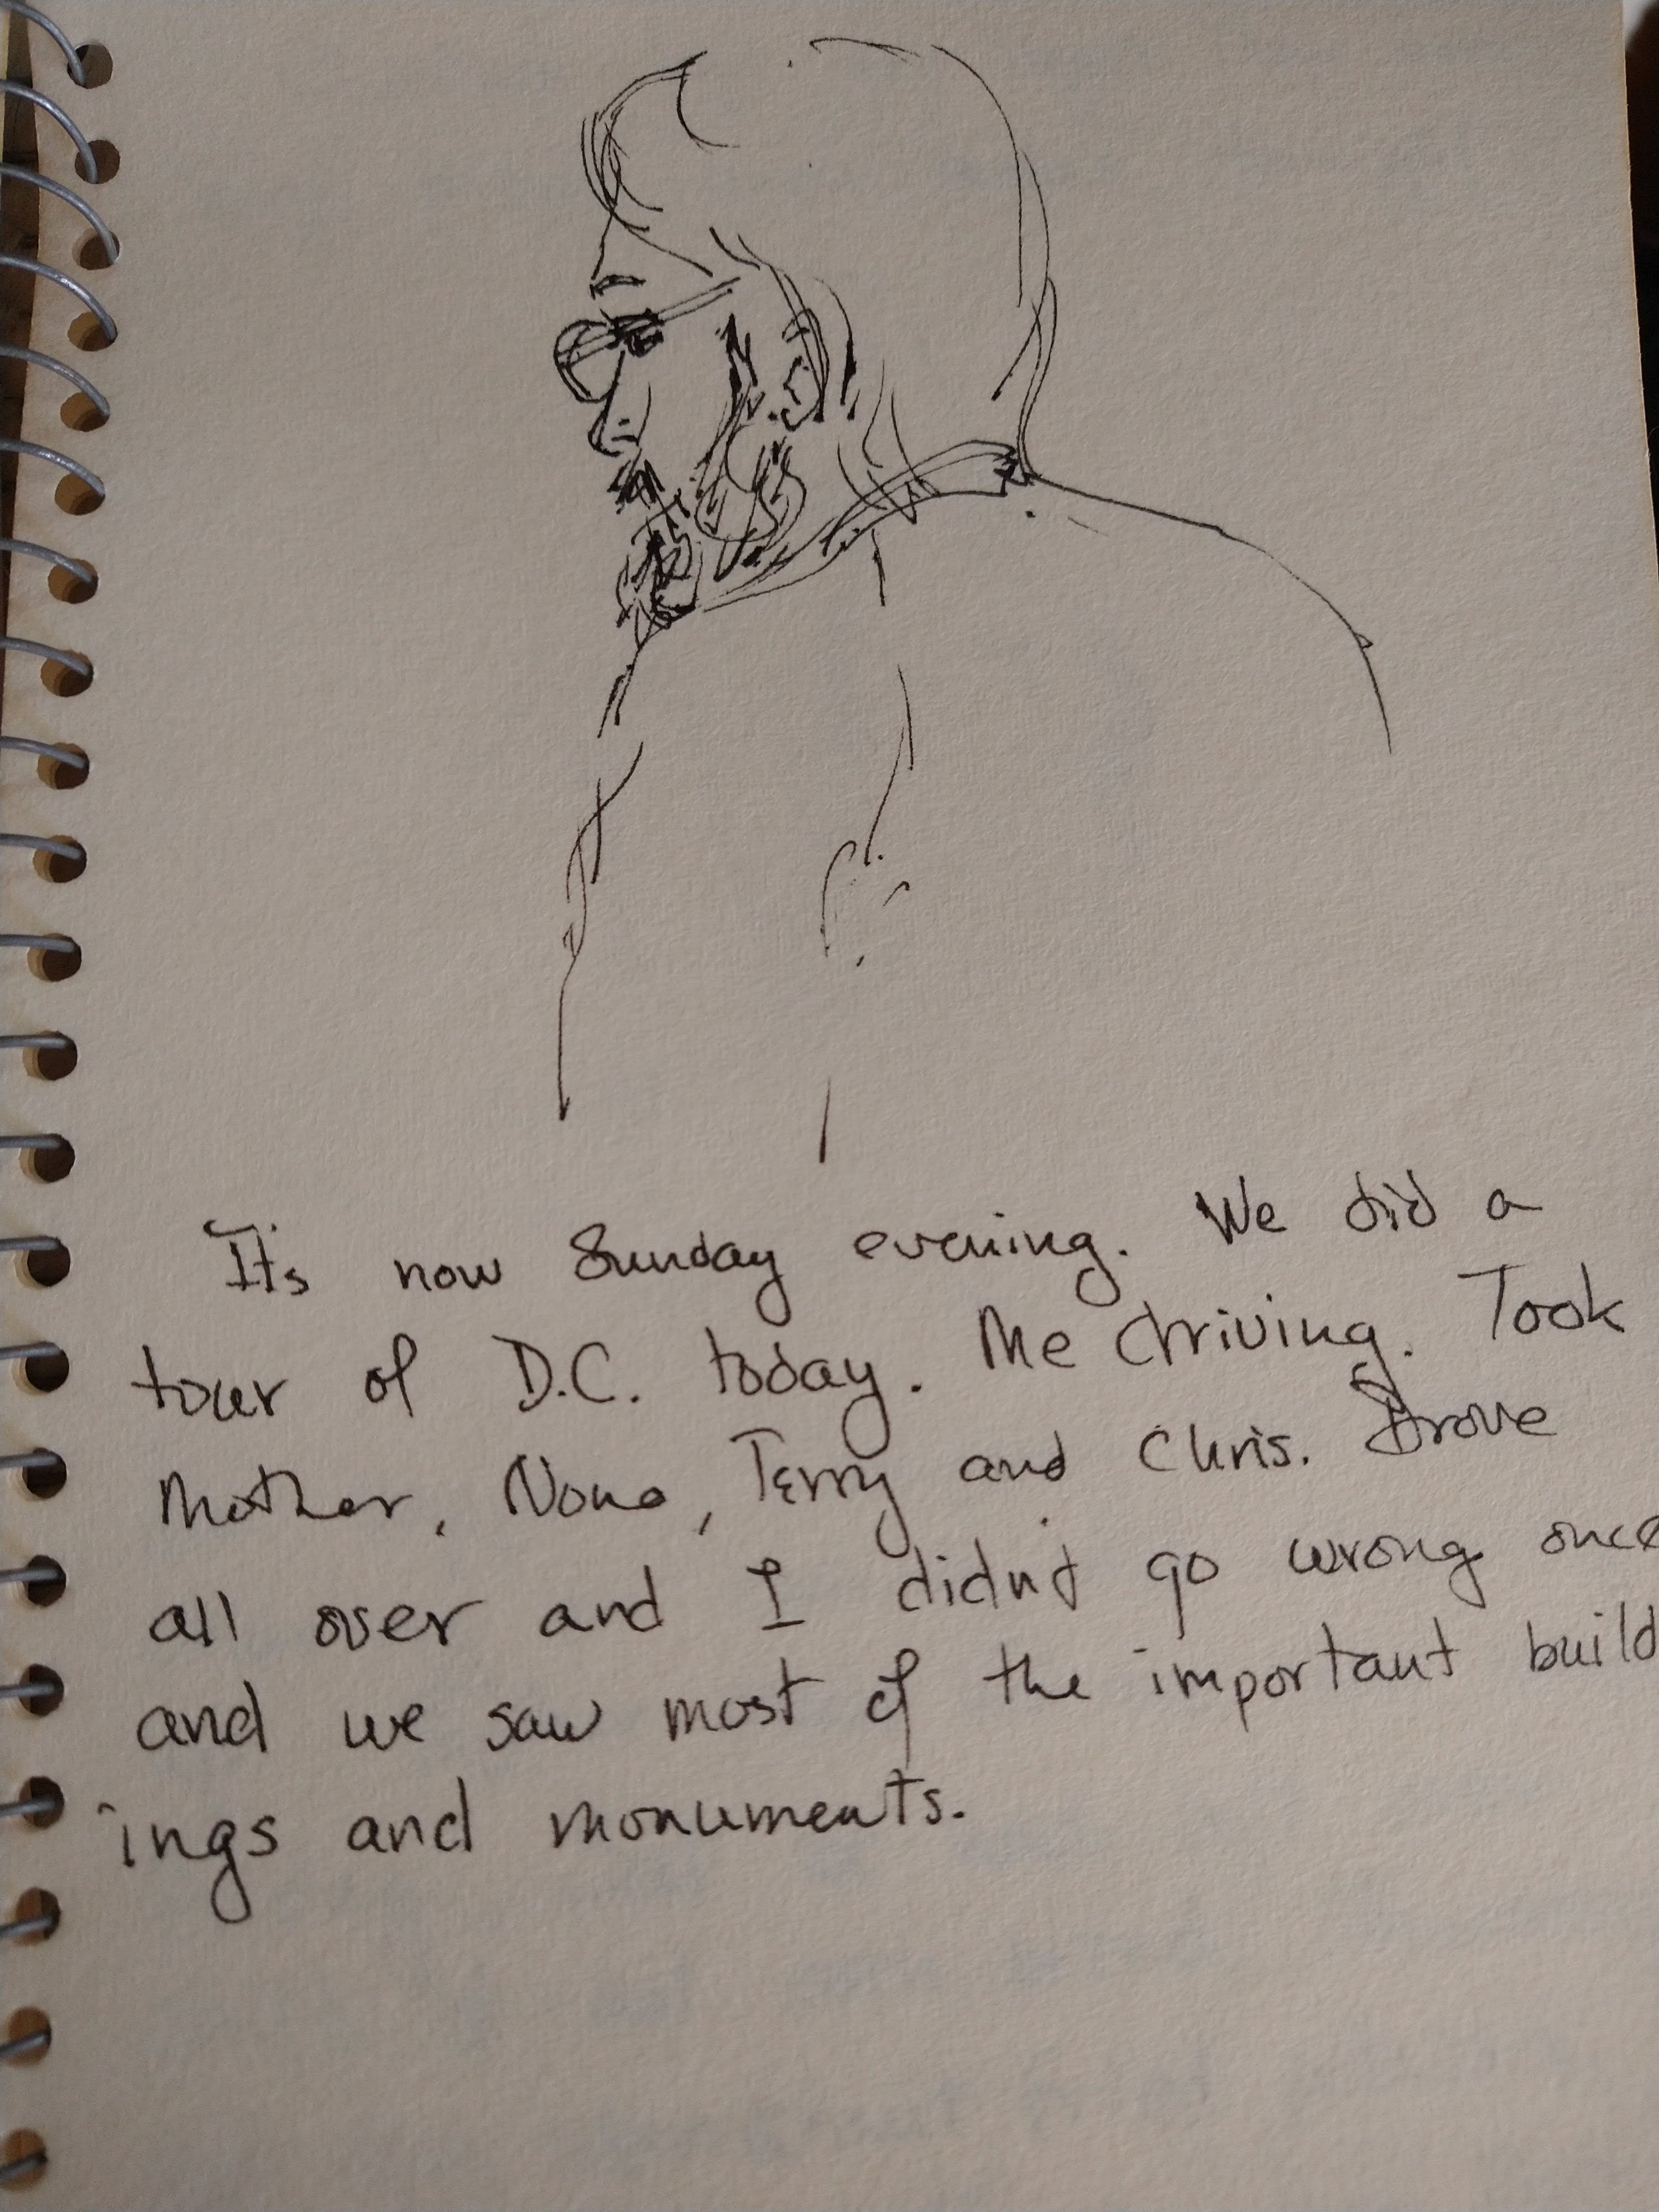 It's now Sunday evening. We did a
tour of D.C. today. Me driving. Took
Mother, Nona, Terry and Chris. Drove
all over and I didn't go wrong once
and we saw most of the important build
ings and monuments.